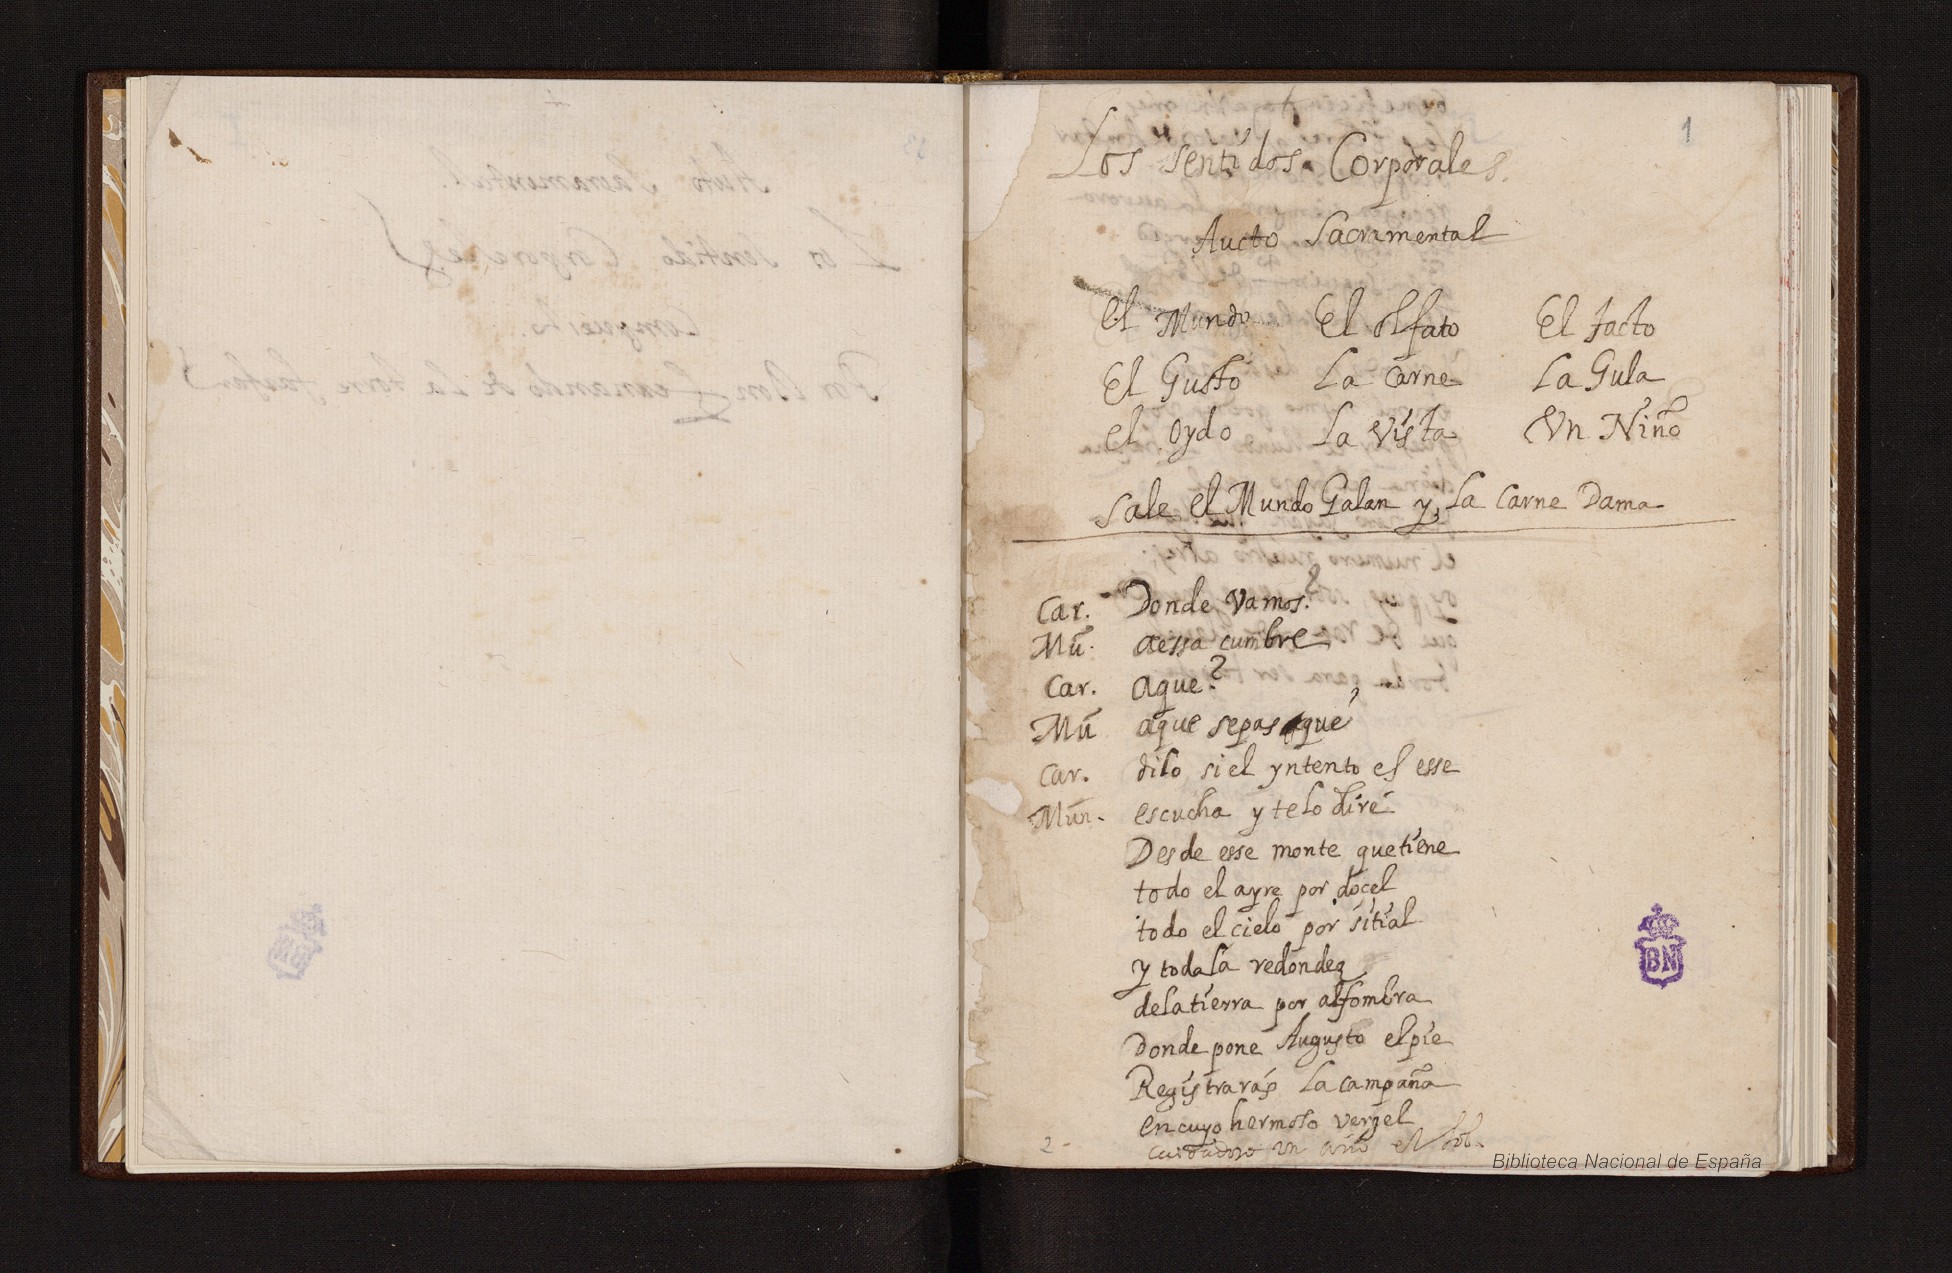 1
Los sentidos Corporales.
Aucto Sacramental
El Mundo El Olfato El tacto
El Gusto La Carne La Gula
el oydo La Vista Un Niño
Sale el Mundo Galan y La Carne Dama
Car. Donde Vamos?
Mu. aessa cumbre
Car. aque?
Mu aque sepas aque
Car. dilo si el yntento es esse
Mun. escucha y telo dire
Desde esse monte quetiene
todo el ayre por docel
todo el cielo por sitial
y todala redondez
delatierra por alfombra
Donde pone Augusto elpie
Registraras La campaña
en cuyo hermoso vergel
cuidadoso un año el
2
BN
Biblioteca Nacional de España